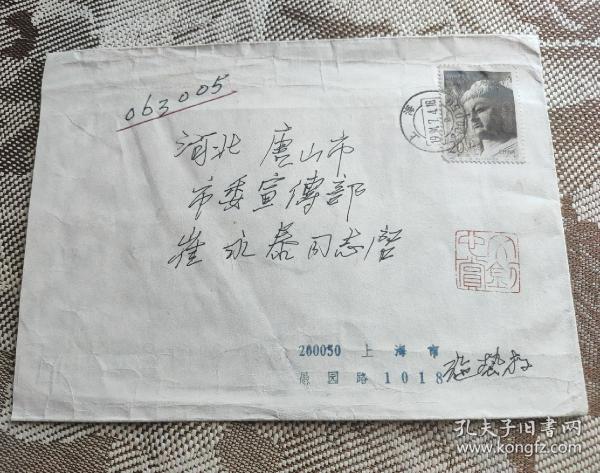 063005
河北 唐山市
市委宣傳部
崔永泰同志啓
上海
200050 上海市
愚园路1018
孔夫子旧书网
www.kongfz.com